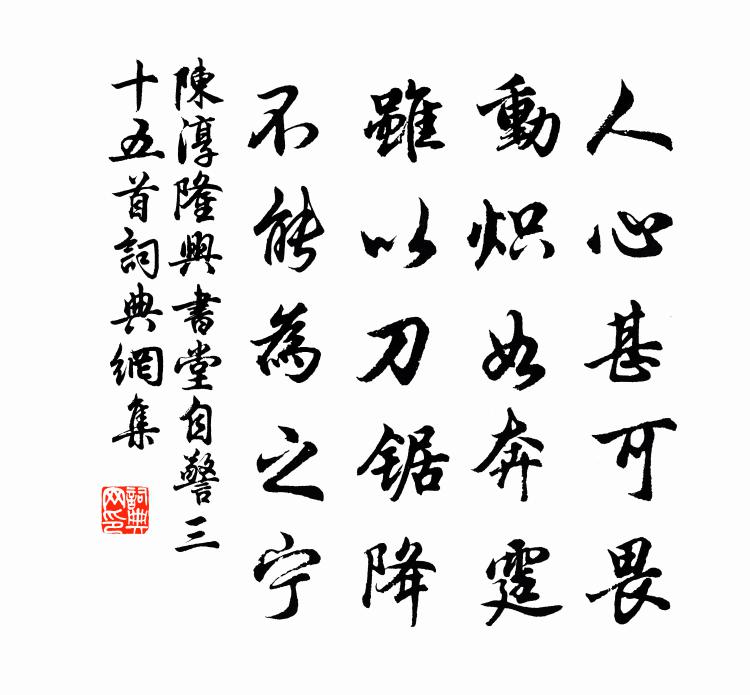 人心甚可畏
動炽如奔霆
雖以刀锯降
不能為之宁
陳淳隆興書堂自警三
十五首詞典網集
詞典
网印